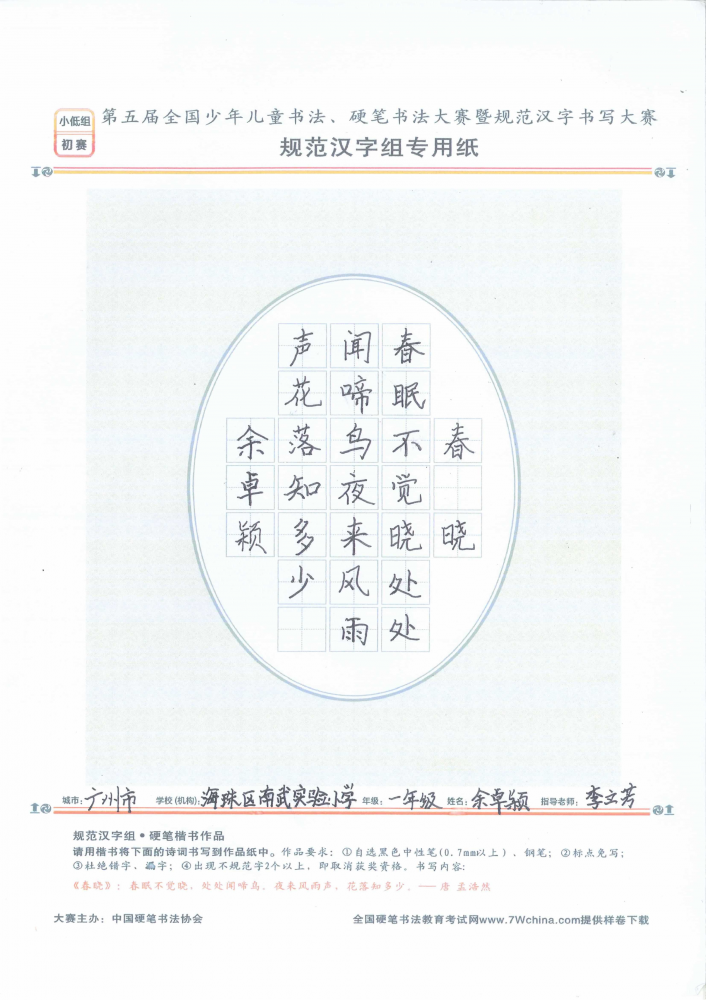 小低组
初赛
第五届全国少年儿童书法、硬笔书法大赛暨规范汉字书写大赛
规范汉字组专用纸
春晓
春眠不觉晓处处
闻啼鸟夜来风雨
声花落知多少
余卓颖
城市:广州市 学校(机构):海珠区南武实验小学 年级:一年级 姓名:余卓颖 指导老师:李立芳
规范汉字组·硬笔楷书作品
请用楷书将下面的诗词书写到作品纸中。作品要求:①自选黑色中性笔(0.7mm以上)、钢笔;②标点免写;
③杜绝错字、漏字;④出现不规范字2个以上,即取消获奖资格。书写内容:
《春晓》:春眠不觉晓,处处闻啼鸟。夜来风雨声,花落知多少。——唐 孟浩然
大赛主办:中国硬笔书法协会
全国硬笔书法教育考试网www.7Wchina.com提供样卷下载